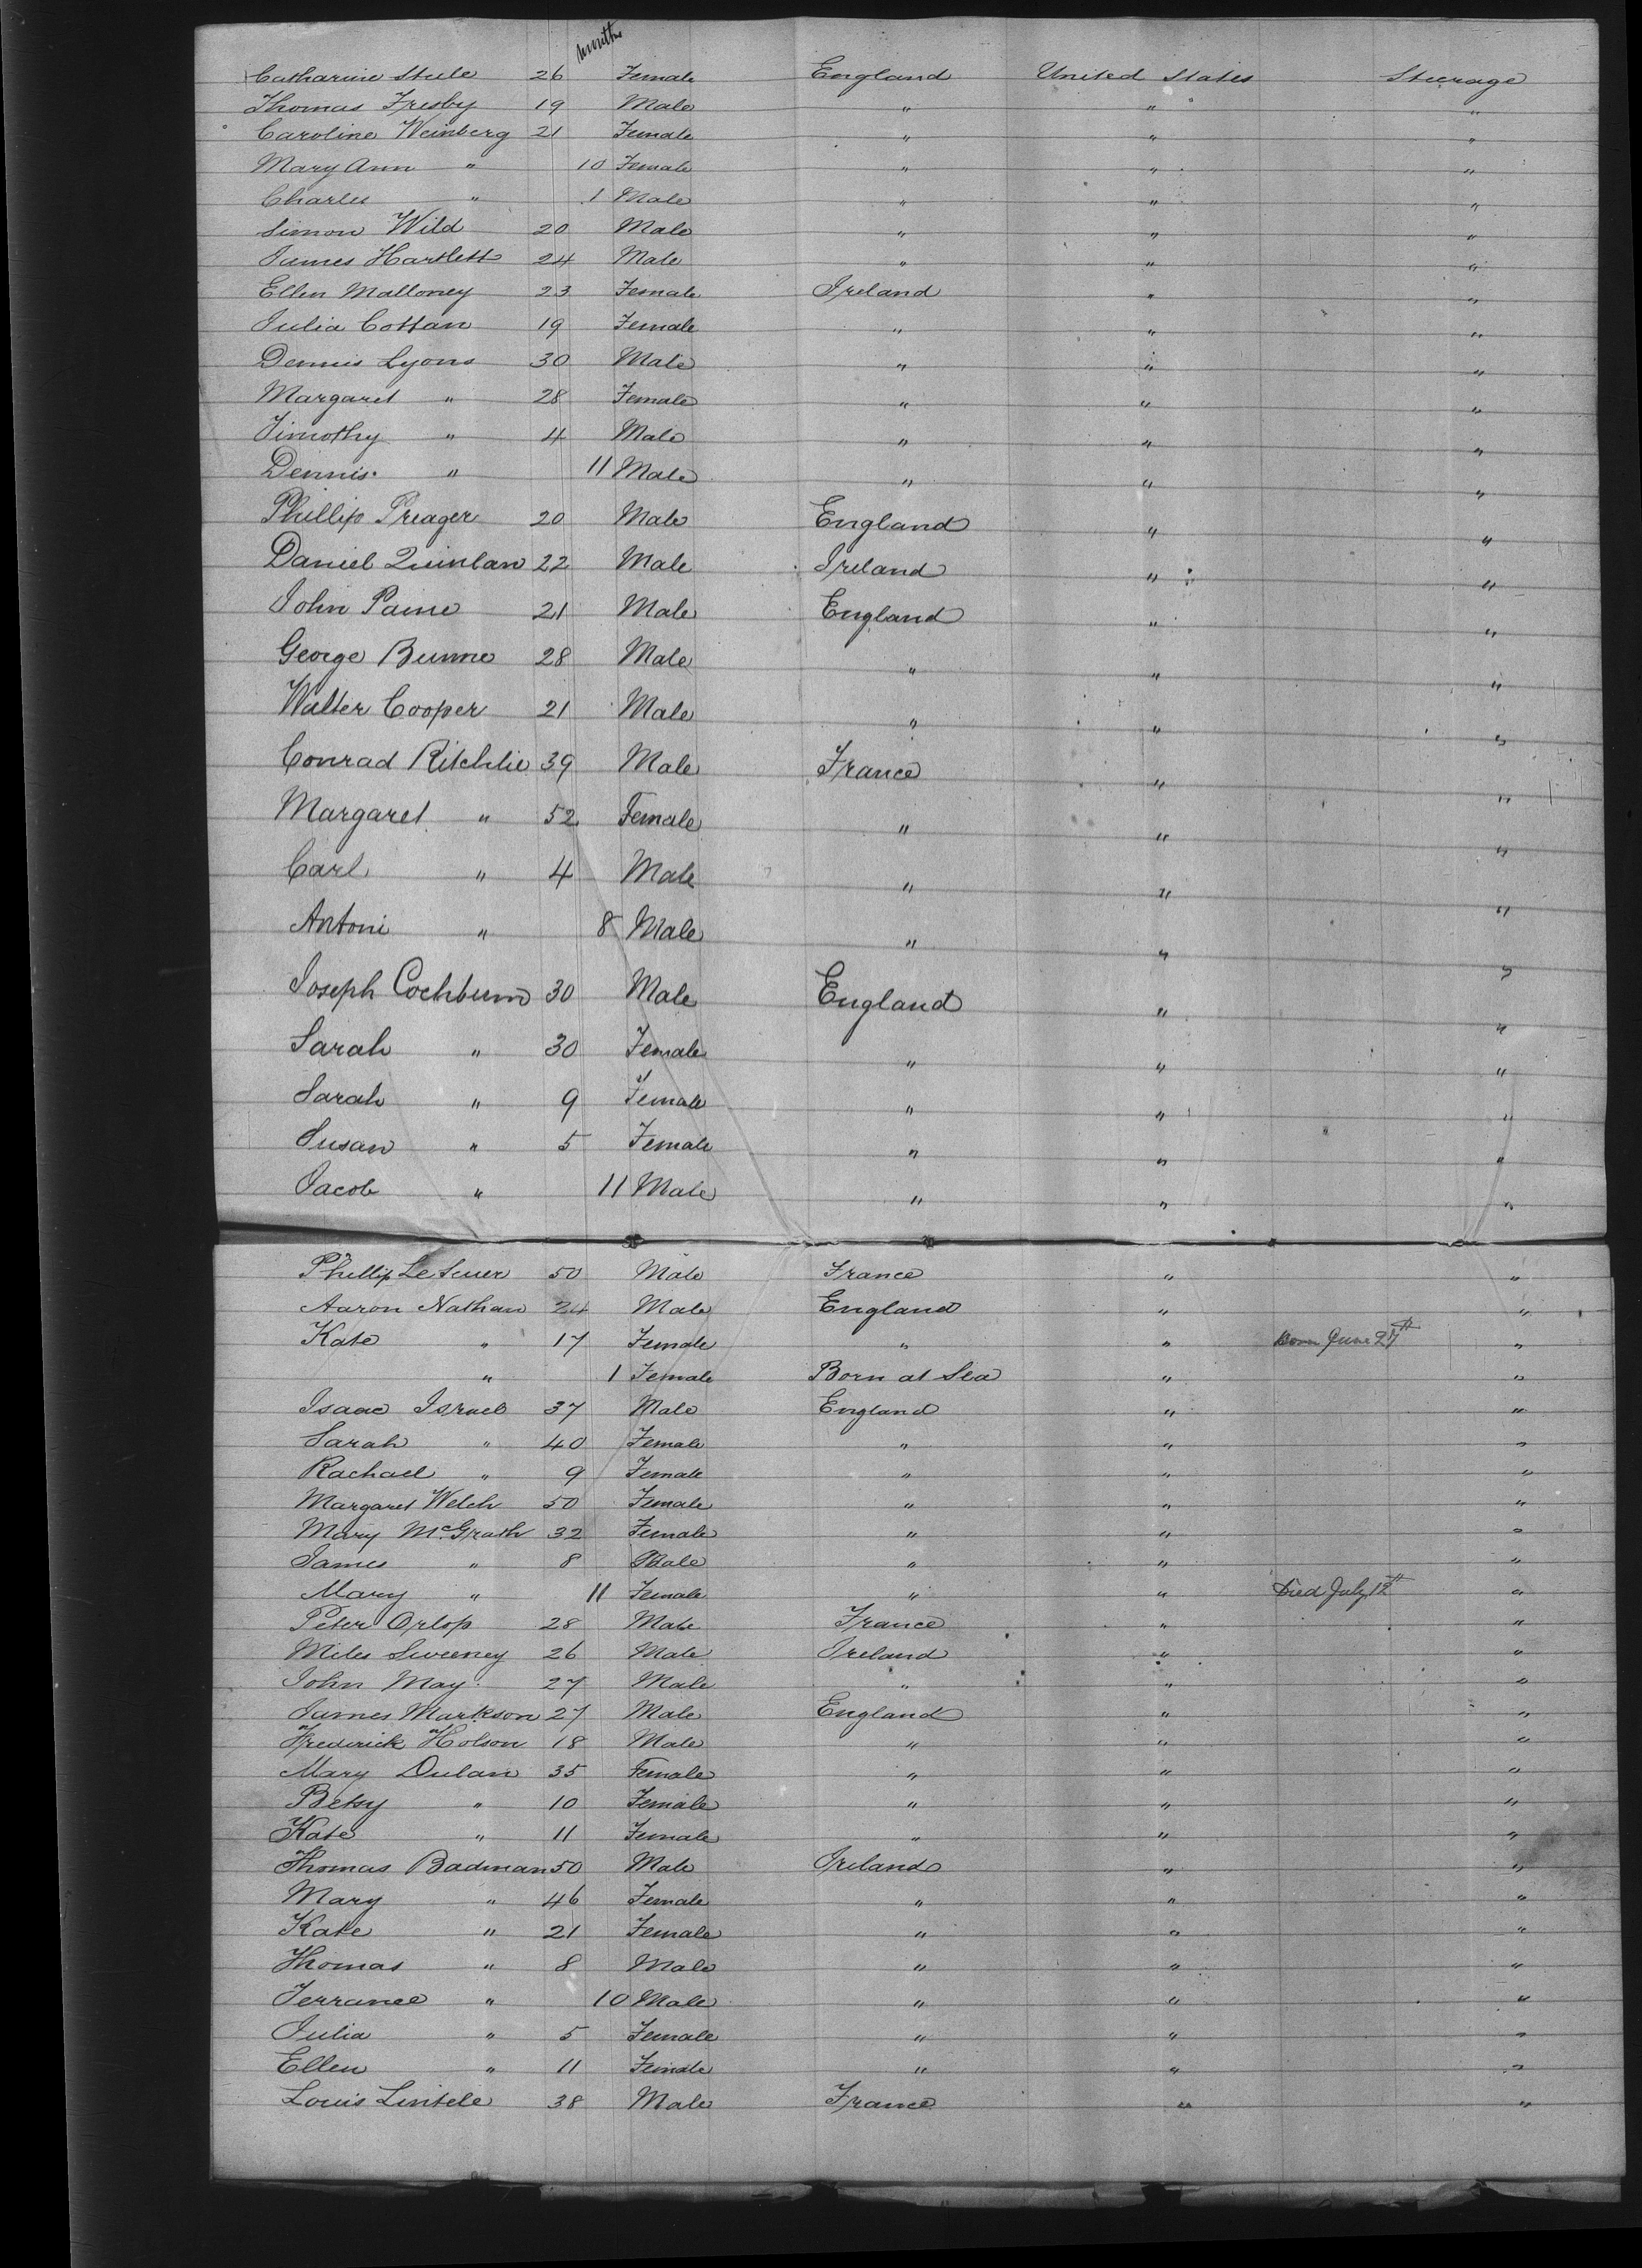 months
Catharine Steele 26 Female England United States Steerage
Thomas Fresby 19 Male " " "
Caroline Weinberg 21 Female " " "
Mary Ann " 10 Female " " "
Charles " 1 Male " " "
Simon Wild 20 Male " " "
James Hartlett 24 Male " " "
Ellen Malloney 23 Female Ireland " "
Julia Cottan 19 Female " " "
Dennis Lyons 30 Male " " "
Margaret " 28 Female " " "
Timothy " 4 Male " " "
Dennis " 11 Male " " "
Phillip Preager 20 Male England " "
Daniel Quinlan 22 Male Ireland " "
John Paine 21 Male England " "
George Bunne 28 Male " " "
Walter Cooper 21 Male " " "
Conrad Ritchlie 39 Male France " "
Margaret " 52 Female " " "
Carl " 4 Male " " "
Antoni " 8 Male " " "
Joseph Cochburn 30 Male England " "
Sarah " 30 Female " " "
Sarah " 9 Female " " "
Susan " 5 Female " " "
Jacob " 11 Male " " "
Phillip Le Seuer 50 Male France " "
Aaron Nathan 24 Male England " "
Kate " 17 Female " " Born June 27th "
" 1 Female Born at Sea " "
Isaac Israel 37 Male England " "
Sarah " 40 Female " " "
Rachael " 9 Female " " "
Margaret Welch 50 Female " " "
Mary McGrath 32 Female " " "
James " 8 Male " " "
Mary " 11 Female " " Died July 12th "
Peter Orlop 28 Male France " "
Miles Sweeney 26 Male Ireland " "
John May 27 Male " " "
James Markson 27 Male England " "
Frederick Holson 18 Male " " "
Mary Dulan 35 Female " " "
Betsy " 10 Female " " "
Kate " 11 Female " " "
Thomas Badman 50 Male Ireland " "
Mary " 46 Female " " "
Kate " 21 Female " " "
Thomas " 8 Male " " "
Terrance " 10 Male " " "
Julia " 5 Female " " "
Ellen " 11 Female " " "
Louis Lintele 38 Male France " "